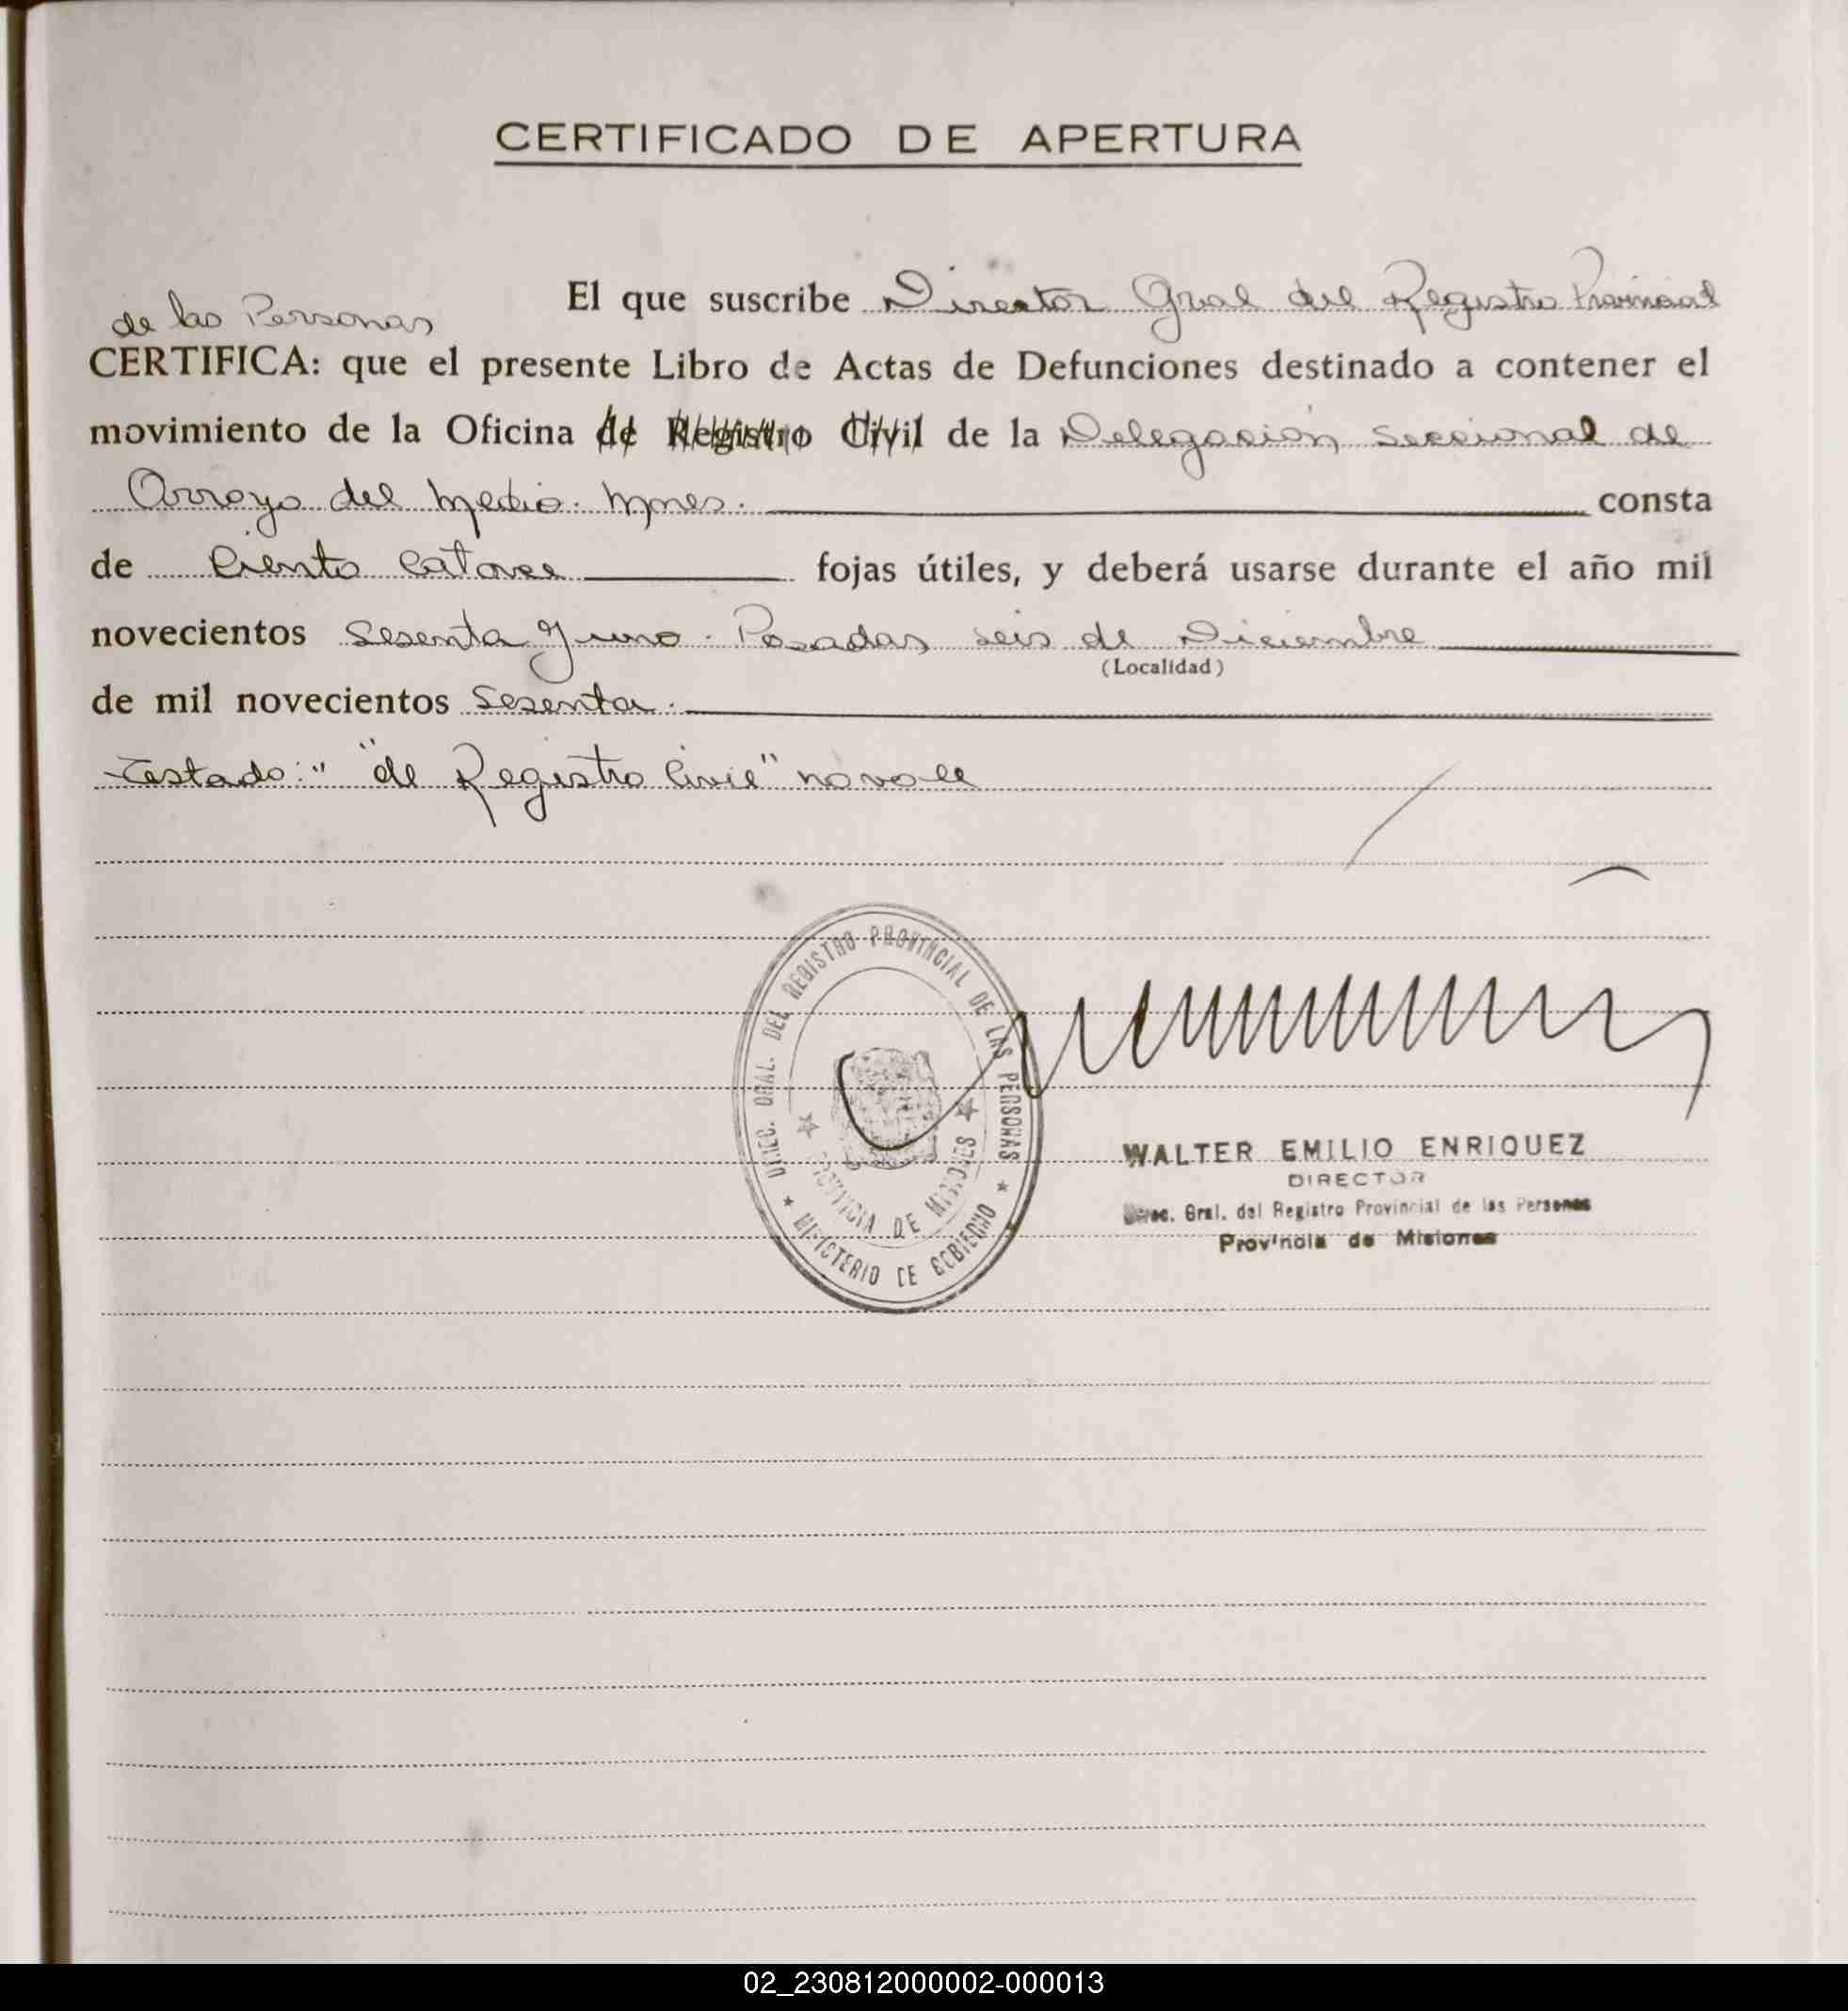 CERTIFICADO DE APERTURA
El que suscribe Director Gral del Registro Provincial
de las Personas
CERTIFICA: que el presente Libro de Actas de Defunciones destinado a contener el
movimiento de la Oficina de Registro Civil de la Delegación Seccional de
Arroyo del Medio. Mnes. consta
de Ciento Catorce fojas útiles, y deberá usarse durante el año mil
novecientos Sesenta y uno. Posadas seis de Diciembre
(Localidad)
de mil novecientos Sesenta.
Testado: " "de Registro Civil" no vale
DIREC. GRAL. DEL REGISTRO PROVINCIAL DE LAS PERSONAS
PROVINCIA DE MISIONES
MINISTERIO DE GOBIERNO
WALTER EMILIO ENRIQUEZ
DIRECTOR
Direc. Gral. del Registro Provincial de las Personas
Provincia de Misiones
02_230812000002-000013